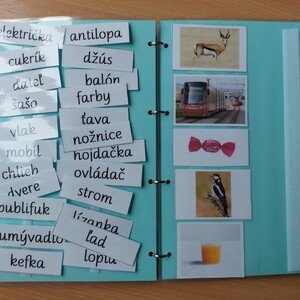 električka
antilopa
cukrík
džús
ďateľ
balón
šašo
farby
ťava
vlak
nožnice
mobil
hojdačka
chlieb
ovládač
dvere
strom
bublifuk
lízanka
umývadlo
ľad
lopta
kefka